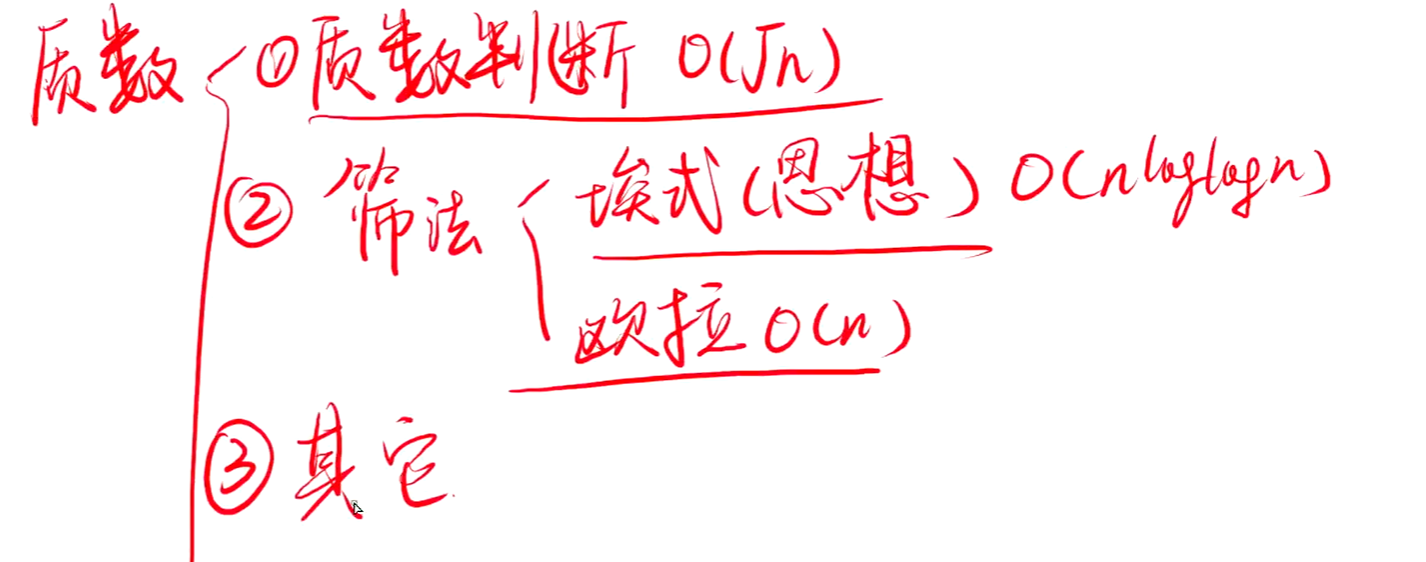 质数 ①质数判断 O(√n)
② 筛法 埃式(思想) O(nloglogn)
欧拉 O(n)
③ 其它